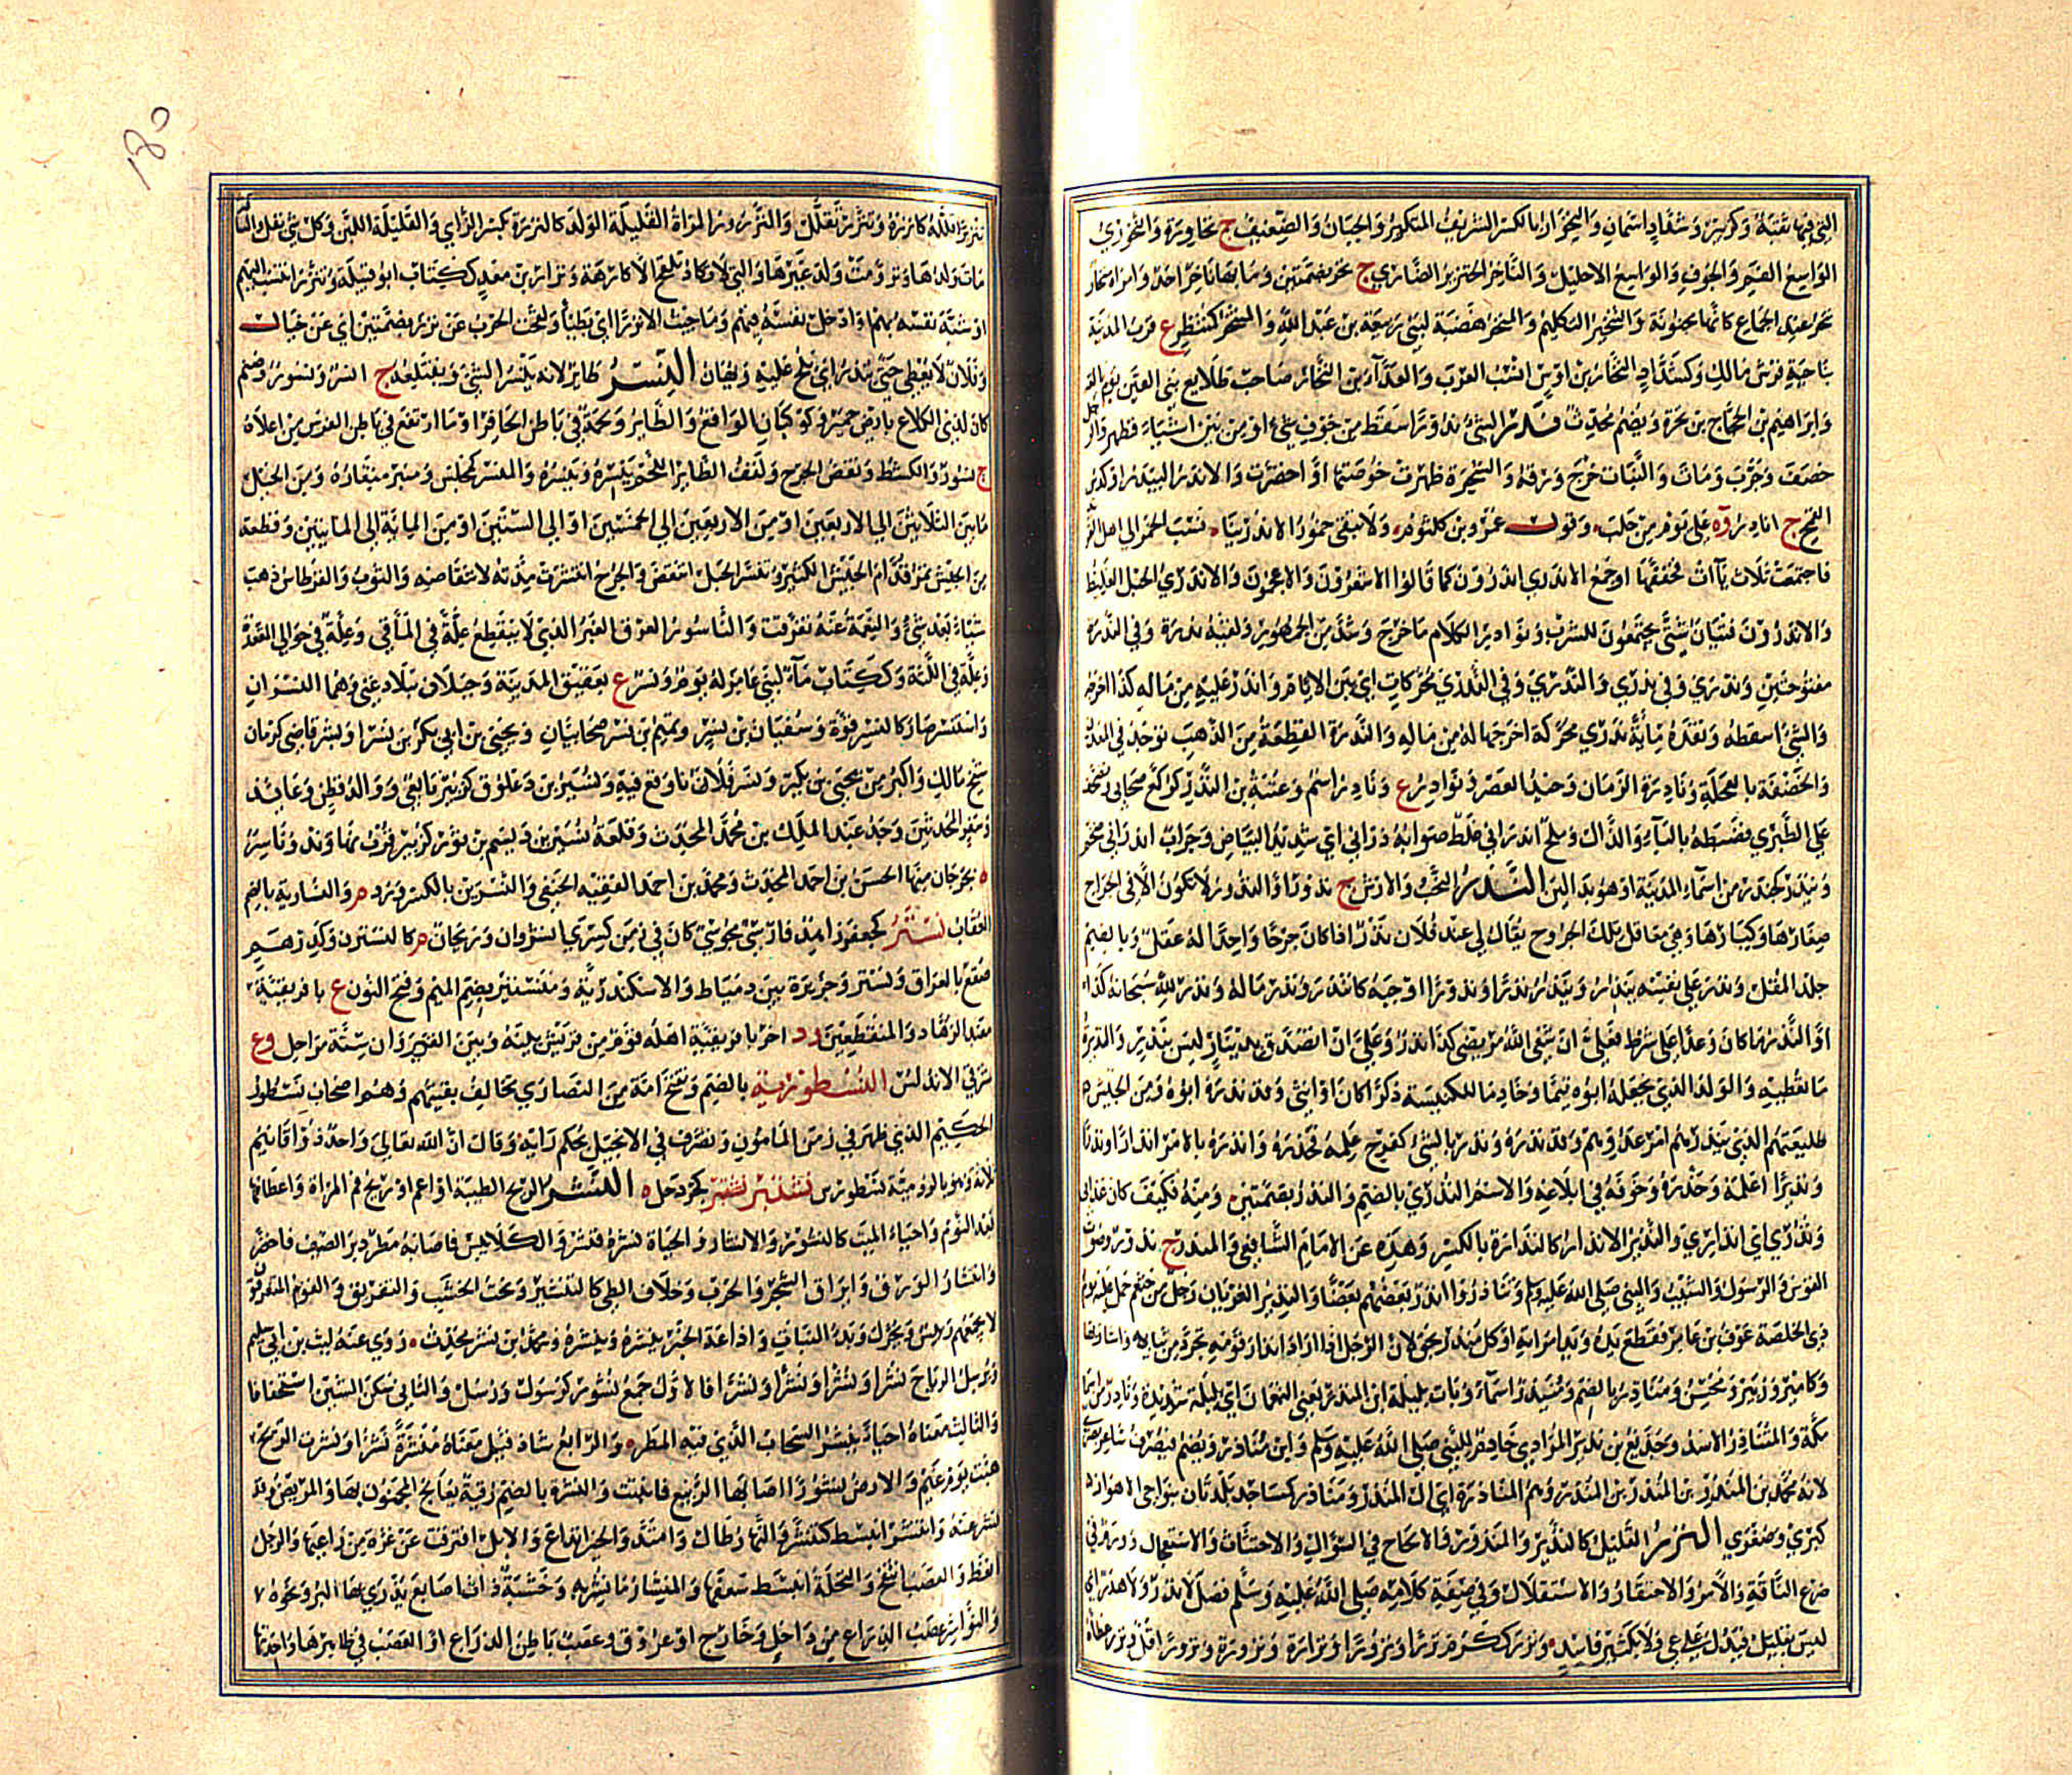 الواسع الفم والجوف والواسع الاحليل والناخر الخنزير الضاري ج نخر بضمتين وما بها ناخر احد وامراة منخار
تنخر عند الجماع كانها مجنونة والنخير التكليم والمنخر هضبة لبني ربيعة بن عبد الله والمنخر كمنتظر ع قرب المدينة
بناحية فرش مالك وكشداد النخار بن اوس انسب العرب والعداء بن النخار صاحب طلايع بني القين يوم
وابراهيم بن الحجاج بن نخرة ويضم محدث ندر الشيء ندورا سقط من جوف شيء او من بين اشياء فظهر والرجل
خضف وجرب ومات والنبات خرج ورقه والشجرة ظهرت خوصتها او اخضرت والاندر البيدر او كدس
القمح ج انادر وة على يوم من حلب وقول عمرو بن كلثوم ولا تبقي خمور الاندرينا نسب الخمر الى اهل
فاجتمعت ثلاث يآات فخففها او جمع الاندري اندرون كما قالوا الاشعرون والاعجمون والاندري الحبل الغليظ
والاندرون فتيان شتى يجتمعون للشرب ونوادر الكلام ما خرج وشذ من الجمهور ولقيه ندرة وفي الندرة
مفتوحتين وندرى وفي ندرى والندرى وفي الندرى محركات اي بين الايام واندر عليه من ماله كذا اخرج
والشيء اسقطه ونقده ماية ندرى محركة اخرجها له من ماله والندرة القطعة من الذهب توجد في المعدن
والخضفة بالعجلة ونادرة الزمان وحيد العصر ونوادر ع ونادر اسم وعتبة بن الندر كركع صحابي
على الطبري فضبطه بالباء والذال وملح اندراني غلط صوابه ذراني اي شديد البياض وجراب اندراني ضخم
وندر كجندر من اسماء المدينة او هو بدال الندر النحب والارش ج نذور او النذور لا تكون الا في الجراح
صغارها وكبارها وهي معاقل تلك الجروح يقال لي عند فلان نذر اذا كان جرحا واحدا له عقل وبالضم
جلد المقل ونذر على نفسه ينذر وينذر نذرا ونذورا اوجبه كانتذر ونذر ماله ونذر لله سبحانه كذا
او النذر ما كان وعدا على شرط فعلي ان شفى الله مريضي كذا نذر وعلي ان اتصدق بدينار ليس بنذر والنذيرة
ما تعطيه والولد الذي يجعله ابوه قيما وخادما للكنيسة ذكرا كان او انثى وقد نذره ابوه ومن الجيش
طليعتهم الذي ينذرهم امر عدوهم وقد نذره ونذر بالشيء كفرح علمه فحذره وانذره بالامر انذارا ونذرا
ونذيرا اعلمه وحذره وخوفه في ابلاغه والاسم النذرى بالضم والنذر بضمتين ومنه فكيف كان عذابي
ونذري اي انذاري والنذير الانذار كالنذارة بالكسر وهذه عن الامام الشافعي والمنذر ج نذر وصوت
القوس والرسول والشيب والنبي صلى الله عليه وسلم وتناذروا انذر بعضهم بعضا والنذير العريان رجل من خثعم حمل عليه يوم
ذي الخلصة عوف بن عامر فقطع يده ويد امراته او كل منذر بحق لان الرجل اذا اراد انذار قومه تجرد من ثيابه واشار بها
وكامير وزبير ومحسن ومناذر بالضم ومنيذر اسماء وبات بليلة ابن المنذر يعني النعمان اي بليلة شديدة وناذر من اسماء
مكة والمتناذر الاسد وجديع بن نذير المرادي خادم للنبي صلى الله عليه وسلم وابن مناذر ويضم فيصرف شاعر بصري
لانه محمد بن المنذر بن المنذر بن المنذر وهم المناذرة اي آل المنذر ومناذر كمساجد بلدتان بنواحي الاهواز
كبرى وصغرى النزر القليل كالنزير والمنزور والالحاح في السؤال والاحتثاث والاستعجال وورم في
ضرع الناقة والامر والاحتقار والاستقلال وفي صفة كلامه صلى الله عليه وسلم فصل لا نزر ولا هذر اي
ليس بقليل فيدل على عي ولا بكثير فاسد ونزر ككرم نزرا ونزورا ونزارة ونزورة ونزرا قل ونزر عطاه
تنزيرا قلله كانزره وتنزر تقلل والنزور المراة القليلة الولد كالنزرة بكسر الزاي والقليلة اللبن وكل شيء يقل
مات ولدها وتروم ولد غيرها والتي لا تكاد تلقح الا كارهة ونزار بن معد ككتاب ابو قبيلة وتنزر انتسب اليهم
او شبه نفسه بهم او ادخل نفسه فيهم وما جئت الا نزرا اي بطيئا ولقحت الحرب عن نزر بضمتين اي عن حيال
وفلان لا يعطي حتى ينزر اي يلح عليه ويهان النسر طائر لانه ينسر الشيء ويقتلعه ج انسر ونسور وصنم
كان لذي الكلاع بارض حمير وكوكبان الواقع والطاير ولحمة في باطن الحافر او ما ارتفع في باطن الفرس من اعلاه
ج نسور والكشط ونقض الجرح ونتف الطاير اللحم ينسره وينسره والمنسر كمجلس ومنبر منقاره ومن الخيل
ما بين الثلاثين الى الاربعين او من الاربعين الى الخمسين او الى الستين او من الماية الى المايتين وقطعة
من الجيش تمر قدام الجيش الكثير وتنسر الحبل انتقض والجرح انتشرت مدته لانتقاضه والثوب والقرطاس ذهب
شيئا بعد شيء والنعمة عنه تفرقت والناسور العرق الغبر الذي لا ينقطع علة في المآقي وعلة في حوالي المقعدة
وعلة في اللثة وككتاب ماء لبني عامر له يوم ونسر ع بعقيق المدينة وجبلان ببلاد غني وهما النسران
واستنسر صار كالنسر قوة وسفيان بن نسر وتميم بن نسر صحابيان ويحيى بن ابي بكر بن نسر او بشر قاضي كرمان
شيخ مالك واكبر من يحيى بن بكير ونسر فلانا وقع فيه ونسير بن ذعلوق كزبير تابعي ووالد قطن وعائذ
وسفر المحدثين وجد عبد الملك بن محمد المحدث وقلعة نسير بن ديسم بن ثور كزبير قرب نهاوند وناسر
ة بجرجان منها الحسن بن احمد المحدث ومحمد بن احمد الفقيه الحنفي والنسرين بالكسر ورد م والنسارية بالضم
العقاب نستر كجعفر ذامذ فارسي مجوسي كان في زمن كسرى انوشروان وريحان م كالنسترن وكدرهم
صقع بالعراق ونستر وجزيرة بين دمياط والاسكندرية ومنستير بضم الميم وفتح النون ع بافريقية
معبد الزهاد والمنقطعين ود اخر بافريقية اهله قوم من قريش بينه وبين القيروان ستة مراحل وع
شرقي الاندلس النسطورية بالضم وتفتح امة من النصارى تخالف بقيتهم وهم اصحاب نسطور
الحكيم الذي ظهر في زمن المامون وتصرف في الانجيل بحكم رايه وقال ان الله تعالى واحد ذو اقانيم
ثلاثة وهو بالرومية نسطورس نشتبر كجردحل ة النشر الريح الطيبة او اعم او ريح فم المراة واعطافها
بعد النوم واحياء الميت كالنشور والانشار والحياة نشره فنشر والكلا يبس فاصابه مطر دبر الصيف فاخضر
وانتشار الورق وايراق الشجر والجرب وخلاف الطي كالتنشير ونحت الخشب والتفريق والقوم المتفرقون
لا يجمعهم رئيس ويحرك وبدء النبات واذاعة الخبر ينشره وينشره ومحمد بن نشر محدث روى عنه ليث بن ابي سليم
ويرسل الرياح نشرا ونشرا ونشرا ونشرا فالاول جمع نشور كرسول ورسل والثاني سكن الشين استخفافا
والثالث معناه احياء ينشر السحاب الذي فيه المطر والرابع شاذ قيل معناه منشرة نشرا ونشرت الريح
هبت يوم غيم والارض نشورا اصابها الربيع فانبتت والنشرة بالضم رقية يعالج بها المجنون والمريض وقد
نشر عنه وانتشر انبسط كتنشر والنهار طال وامتد والخبر انذاع والابل افترقت عن غرة من راعيها والرجل
انعظ والعصب انتفخ والنخلة انبسط سعفها والمنشار ما نشر به وخشبة ذات اصابع يذرى بها البر ونحوه
والنواشر عصب الذراع من داخل وخارج او عروق وعصب باطن الذراع او العصب في ظاهرها واحدتها